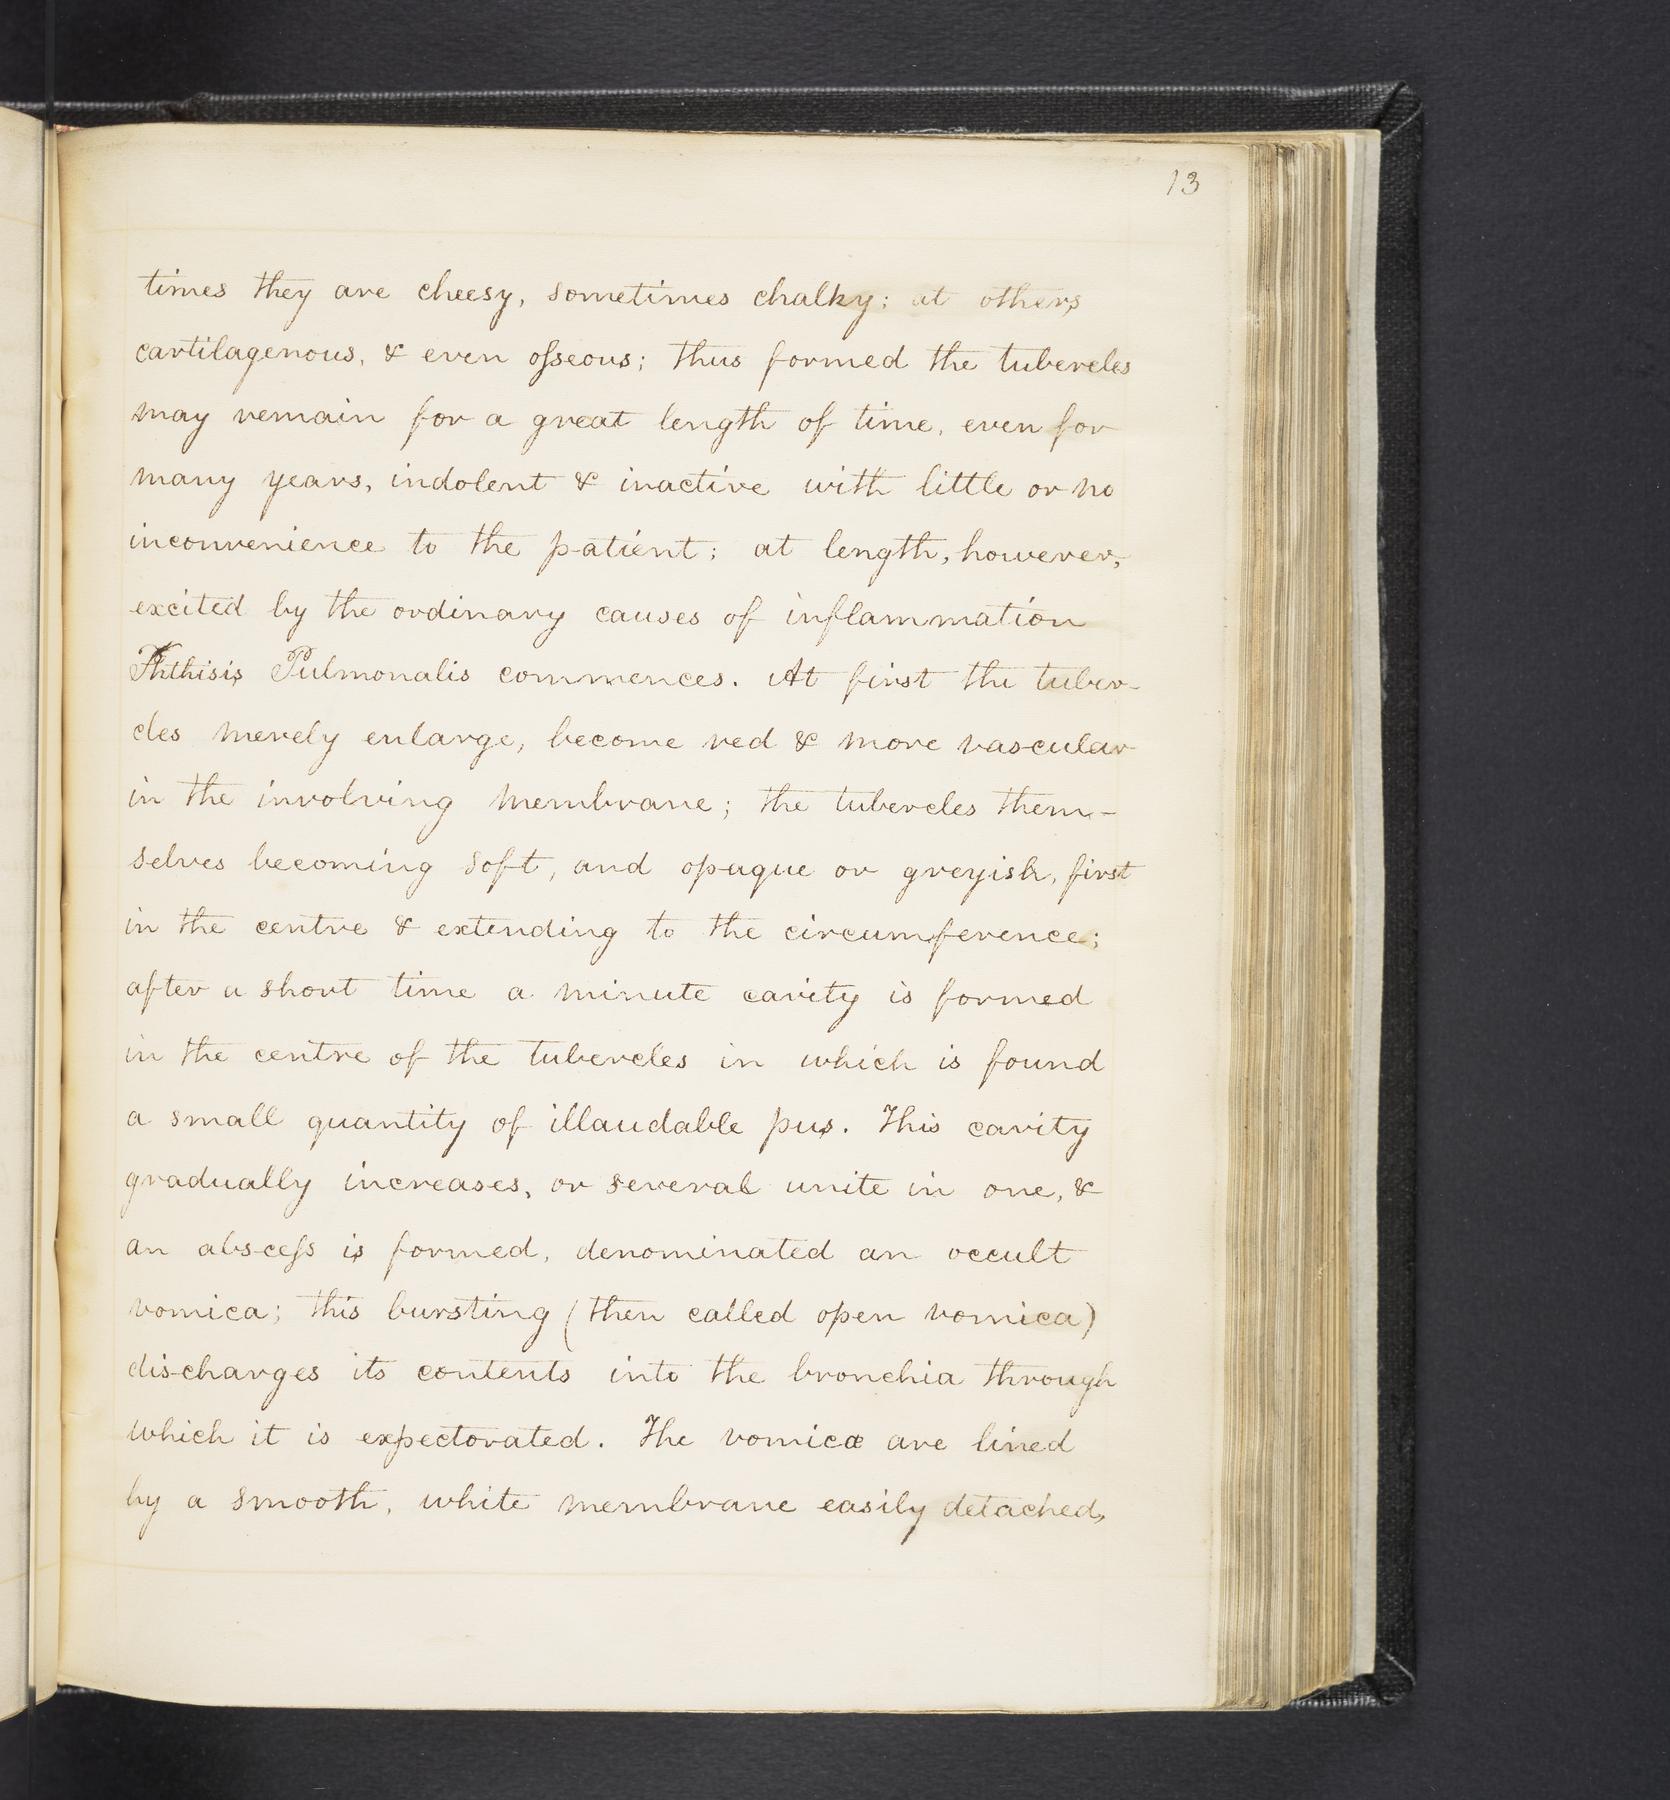 13
times they are cheesy, sometimes chalky; at others
cartilagenous, & even oſseous; thus formed the tubercles
may remain for a great length of time, even for
many years, indolent & inactive with little or no
inconvenience to the patient; at length, however,
excited by the ordinary causes of inflammation
Phthisis Pulmonalis commences. At first the tuber-
cles merely enlarge, become red & more vascular
in the involving membrane; the tubercles them-
selves becoming soft, and opaque or greyish, first
in the centre & extending to the circumference;
after a short time a minute cavity is formed
in the centre of the tubercles in which is found
a small quantity of illaudable pus. This cavity
gradually increases, or several unite in one, &
an absceſs is formed, denominated an occult
vomica; this bursting (then called open vomica)
discharges its contents into the bronchia through
which it is expectorated. The vomicæ are lined
by a smooth, white membrane easily detached,